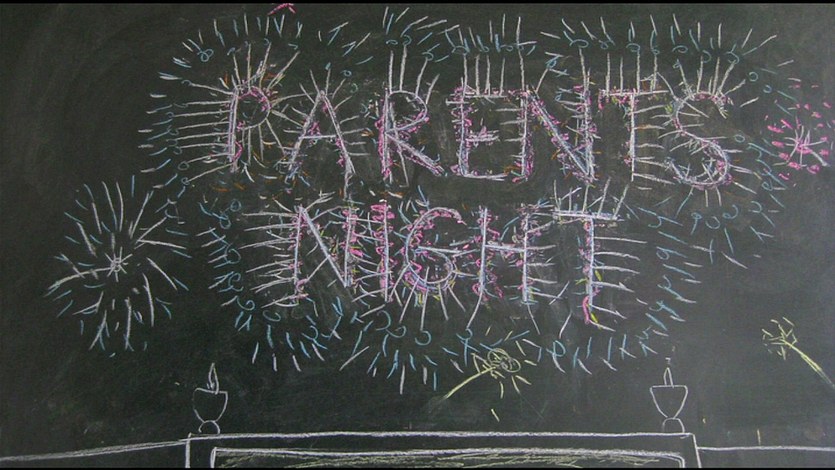 PARENTS
NIGHT